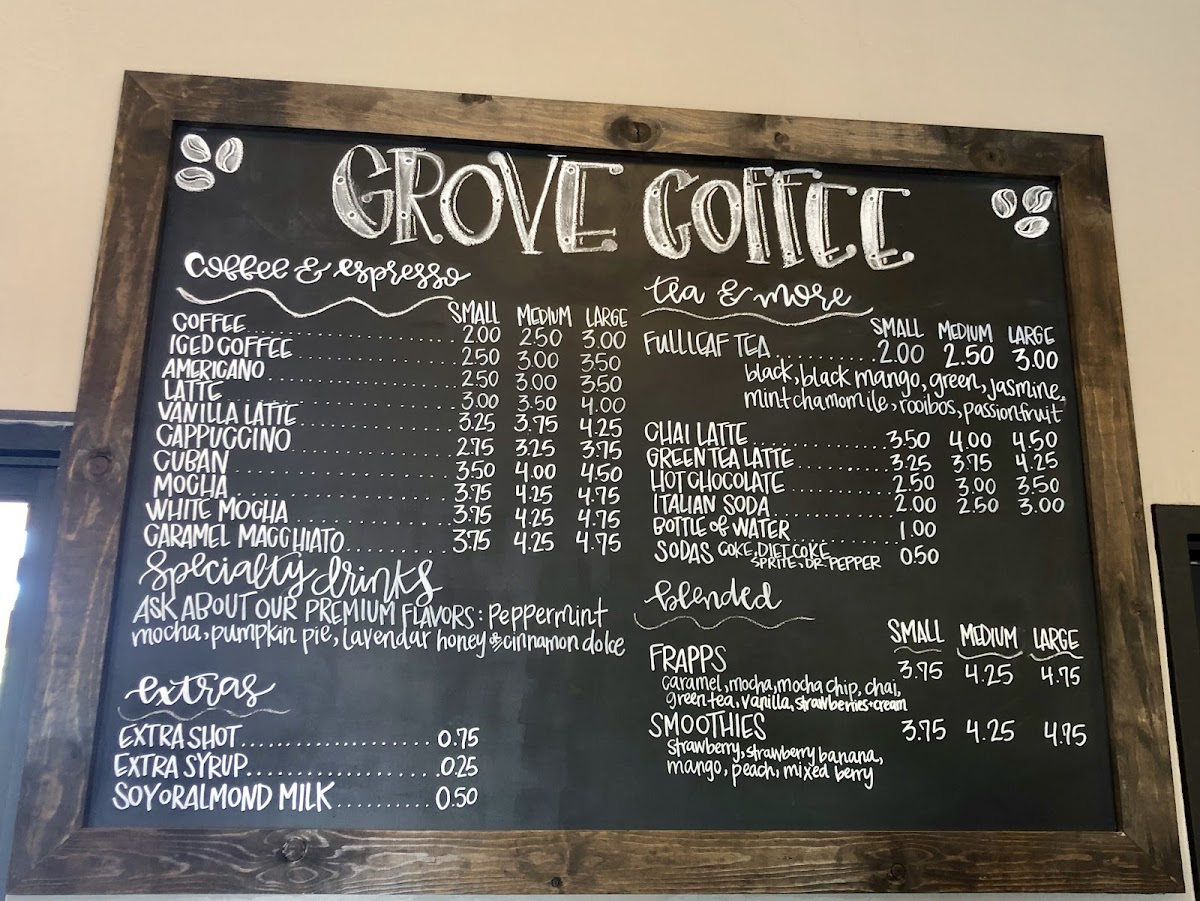 GROVE COFFEE
coffee & espresso
SMALL MEDIUM LARGE
COFFEE 2.00 2.50 3.00
ICED COFFEE 2.50 3.00 3.50
AMERICANO 2.50 3.00 3.50
LATTE 3.00 3.50 4.00
VANILLA LATTE 3.25 3.75 4.25
CAPPUCCINO 2.75 3.25 3.75
CUBAN 3.50 4.00 4.50
MOCHA 3.75 4.25 4.75
WHITE MOCHA 3.75 4.25 4.75
CARAMEL MACCHIATO 3.75 4.25 4.75
Specialty drinks
ASK ABOUT OUR PREMIUM FLAVORS: Peppermint
mocha, pumpkin pie, lavendar honey & cinnamon dolce
extras
EXTRA SHOT 0.75
EXTRA SYRUP 0.25
SOY OR ALMOND MILK 0.50
tea & more
SMALL MEDIUM LARGE
FULL LEAF TEA 2.00 2.50 3.00
black, black mango, green, jasmine,
mint chamomile, rooibos, passionfruit
CHAI LATTE 3.50 4.00 4.50
GREEN TEA LATTE 3.25 3.75 4.25
HOT CHOCOLATE 2.50 3.00 3.50
ITALIAN SODA 2.00 2.50 3.00
BOTTLE of WATER 1.00
SODAS COKE, DIET COKE 0.50
SPRITE, DR. PEPPER
blended
SMALL MEDIUM LARGE
FRAPPS 3.75 4.25 4.75
caramel, mocha, mocha chip, chai,
green tea, vanilla, strawberries + cream
SMOOTHIES 3.75 4.25 4.75
strawberry, strawberry banana,
mango, peach, mixed berry